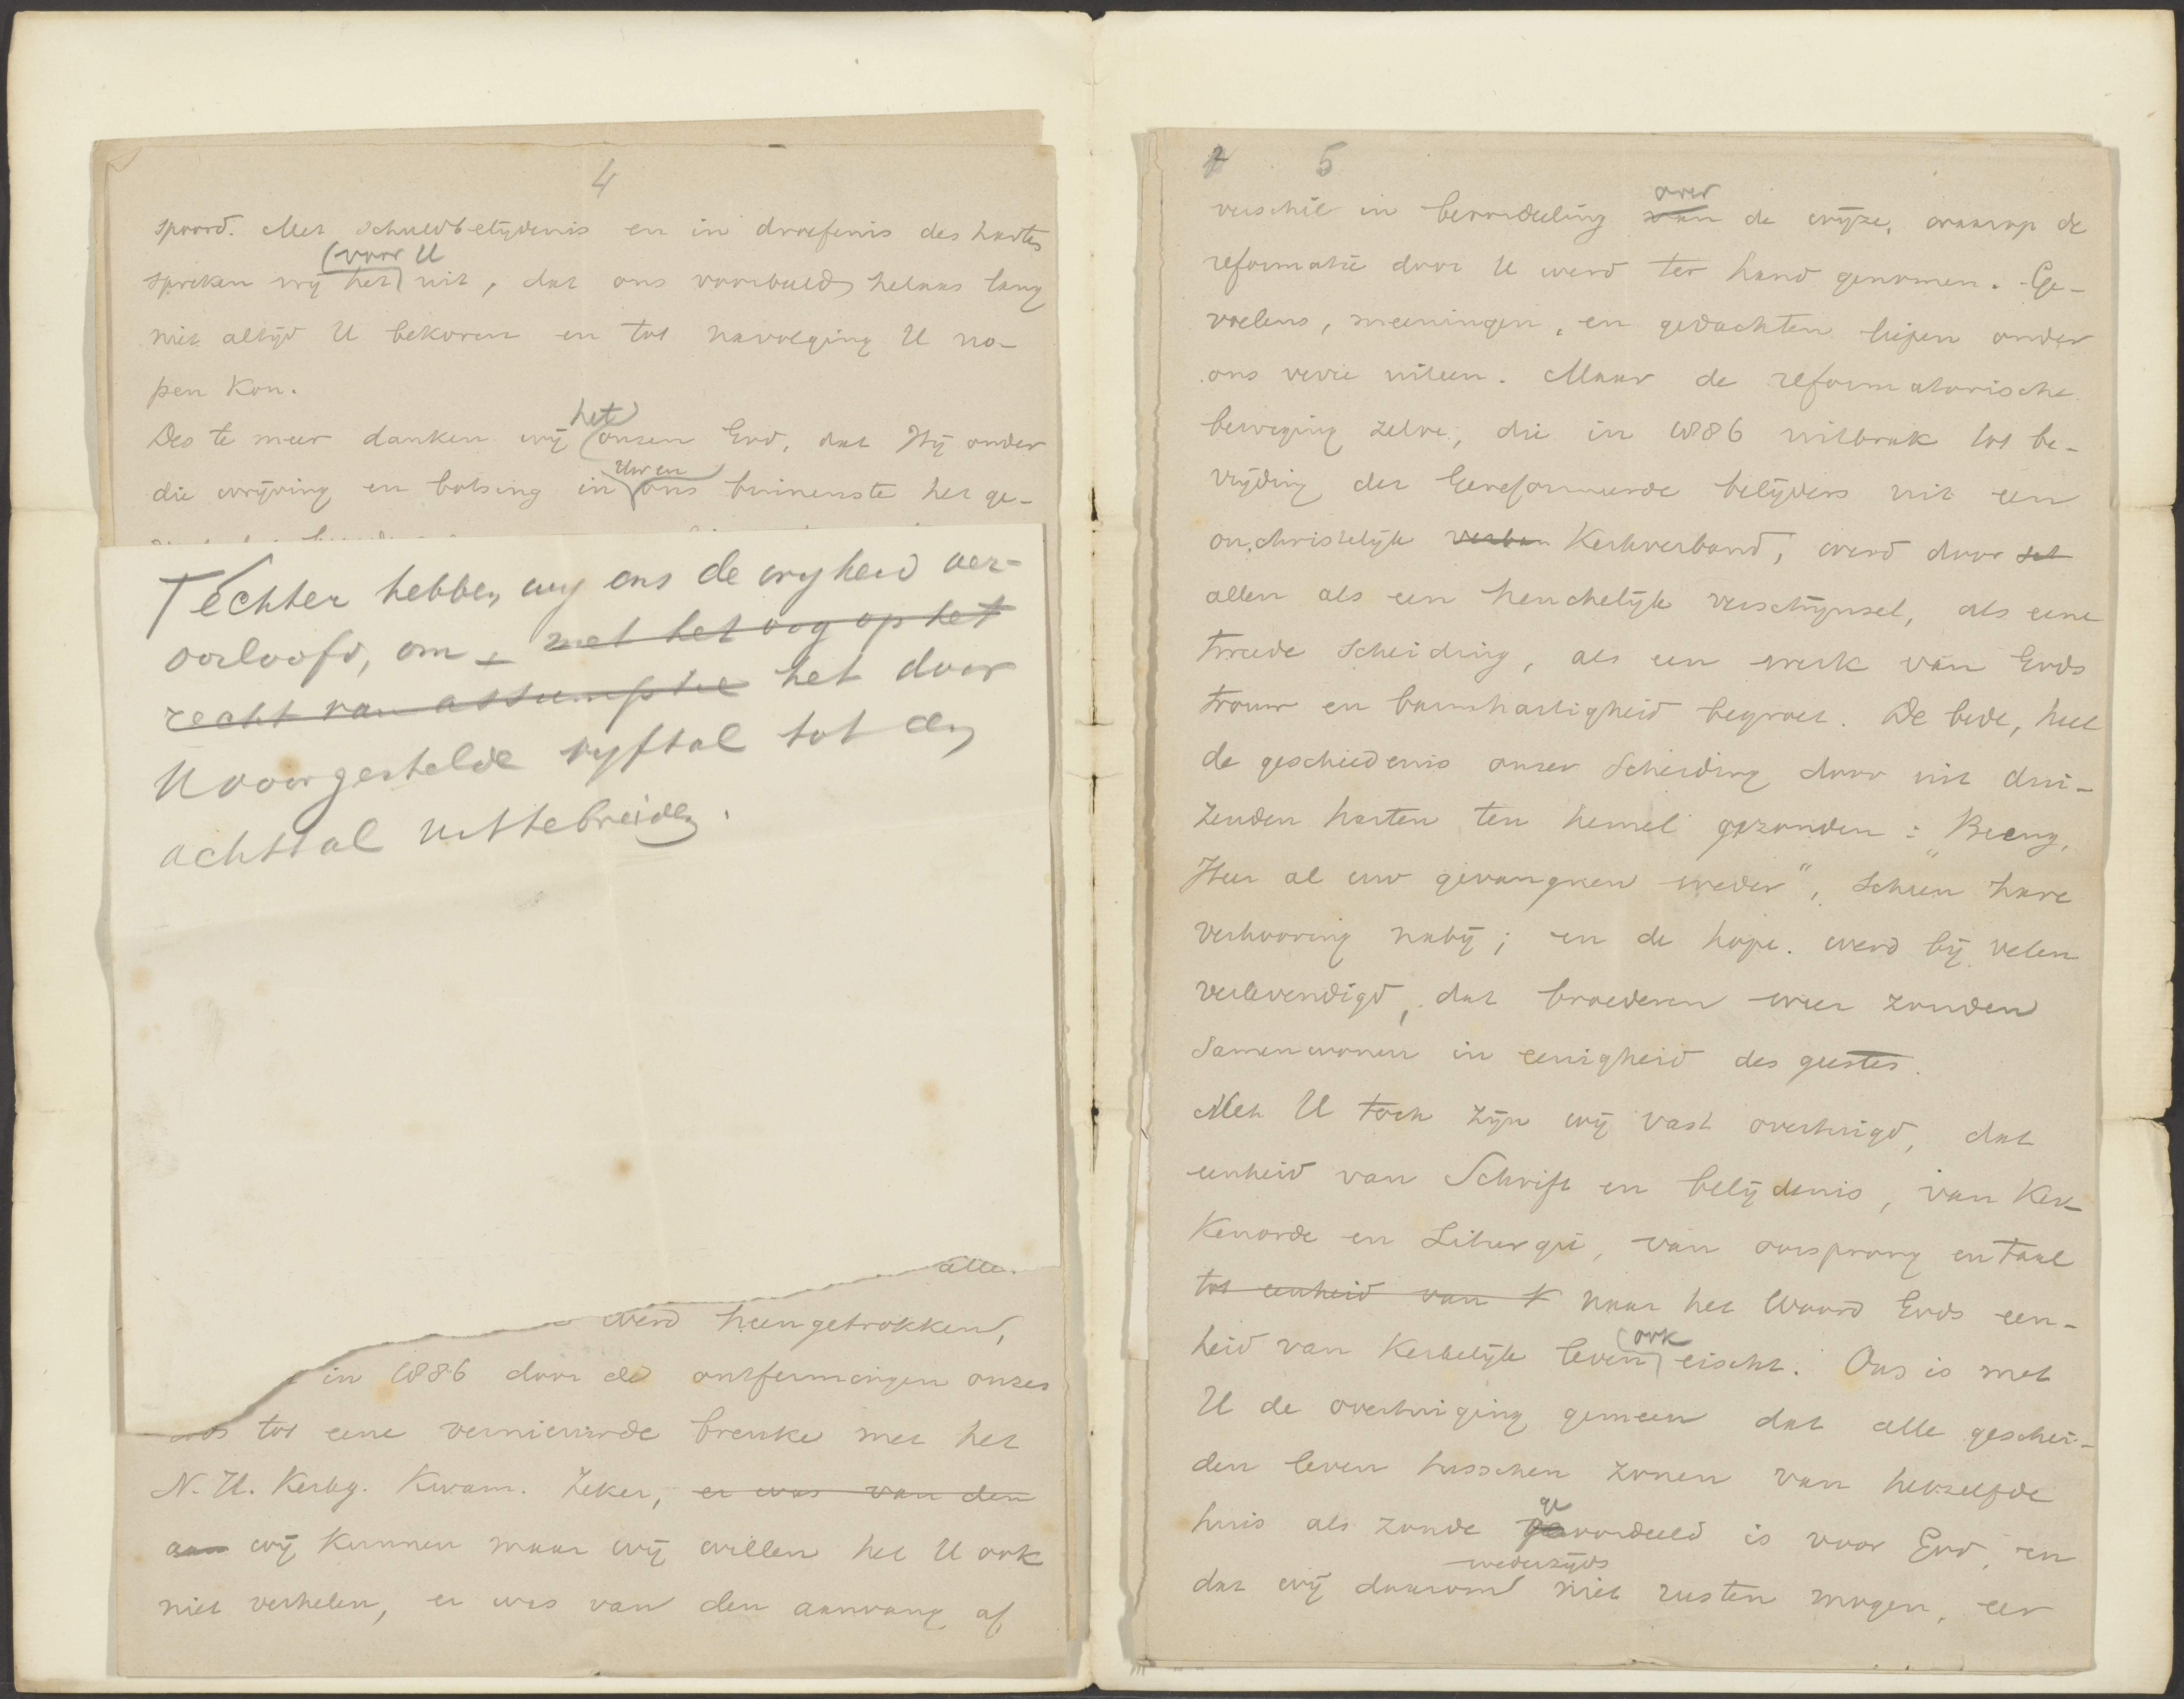 4
spoord. Met schuldbelijdenis en in droefenis des harten
(voor U
spreken wij het uit, dat ons voorbeeld helaas lang
niet altijd U bekoren en tot navolging U no-
pen kon.
het
Des te meer danken wij onzen God, dat Hij onder
Uw en
die wrijving en botsing in ons binnenste het ge-
Techter hebben wij ons de vryheid ver-
oorloofd, om met het oog op het
recht van assumptie het door
U voorgestelde vyftal tot een
achttal uittebreiden.
alle
werd heengetrokken,
in 1886 door de ontfermingen onzes
tot eene vernieuwde breuke met het
N. H. Kerkg. kwam. Zeker, er was van den
aan wij kunnen maar wij willen het U ook
niet verhelen, er was van den aanvang af
5
over
verschil in beoordeeling van de wijze, waarop de
reformatie door U werd ter hand genomen. Ge-
voelens, meeningen, en gedachten liepen onder
ons verre uiteen. Maar de reformatorische
beweging zelve, die in 1886 uitbrak tot be-
vrijding der Gereformeerde belijders uit een
onchristelijk verban Kerkverband, werd door
allen als een heuchelijk verschijnsel, als eene
tweede Scheiding, als een werk van Gods
trouw en barmhartigheid begroet. De bede, heel
de geschiedenis onzer Scheiding door uit dui-
zenden harten ten hemel gezonden: "Breng,
Heer al uw gevangnen weder", scheen hare
verhooring nabij; en de hope werd bij velen
verlevendigd, dat broederen weer zouden
samenwonen in eenigheid des geestes.
Met U toch zijn wij vast overtuigd, dat
eenheid van Schrift en belijdenis, van Ker-
kenorde en Liturgie, van oorsprong en taal
tot eenheid van k naar het Woord Gods een-
ook
heid van Kerkelijk leven eischt. Ons is met
U de overtuiging gemeen dat alle geschei-
den leven tusschen zonen van hetzelfde
ge
huis als zonde geoordeeld is voor God, en
wederzijds
dat wij daarom niet rusten mogen, eer